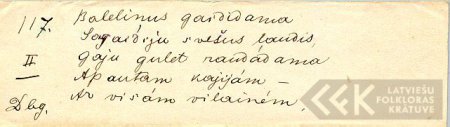 117.
Balelinus gaididama
Sagaidiju svešus laudis,
II
Gaju gulet raudádama
Ap autam kajijám —
Dbg.
Ar visám vilainém,
LATVIEŠU
FOLKLORAS
KRĀTUVE